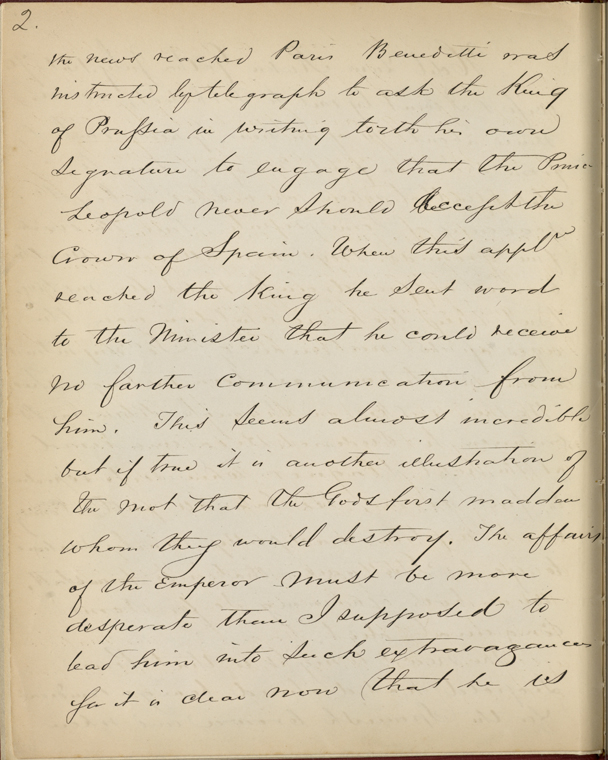 2.
the news reached Paris Benedetti was
instructed by telegraph to ask the King
of Prussia in writing forth his own
signature to engage that the Prince
Leopold never should accept the
Crown of Spain. When this applⁿ
reached the King he sent word
to the Minister that he could receive
no farther communication from
him. This seems almost incredible
but if true it is another illustration of
the mot that the Gods first madden
whom they would destroy. The affairs
of the Emperor must be more
desperate than I supposed to
lead him into such extravagances
for it is clear now that he is